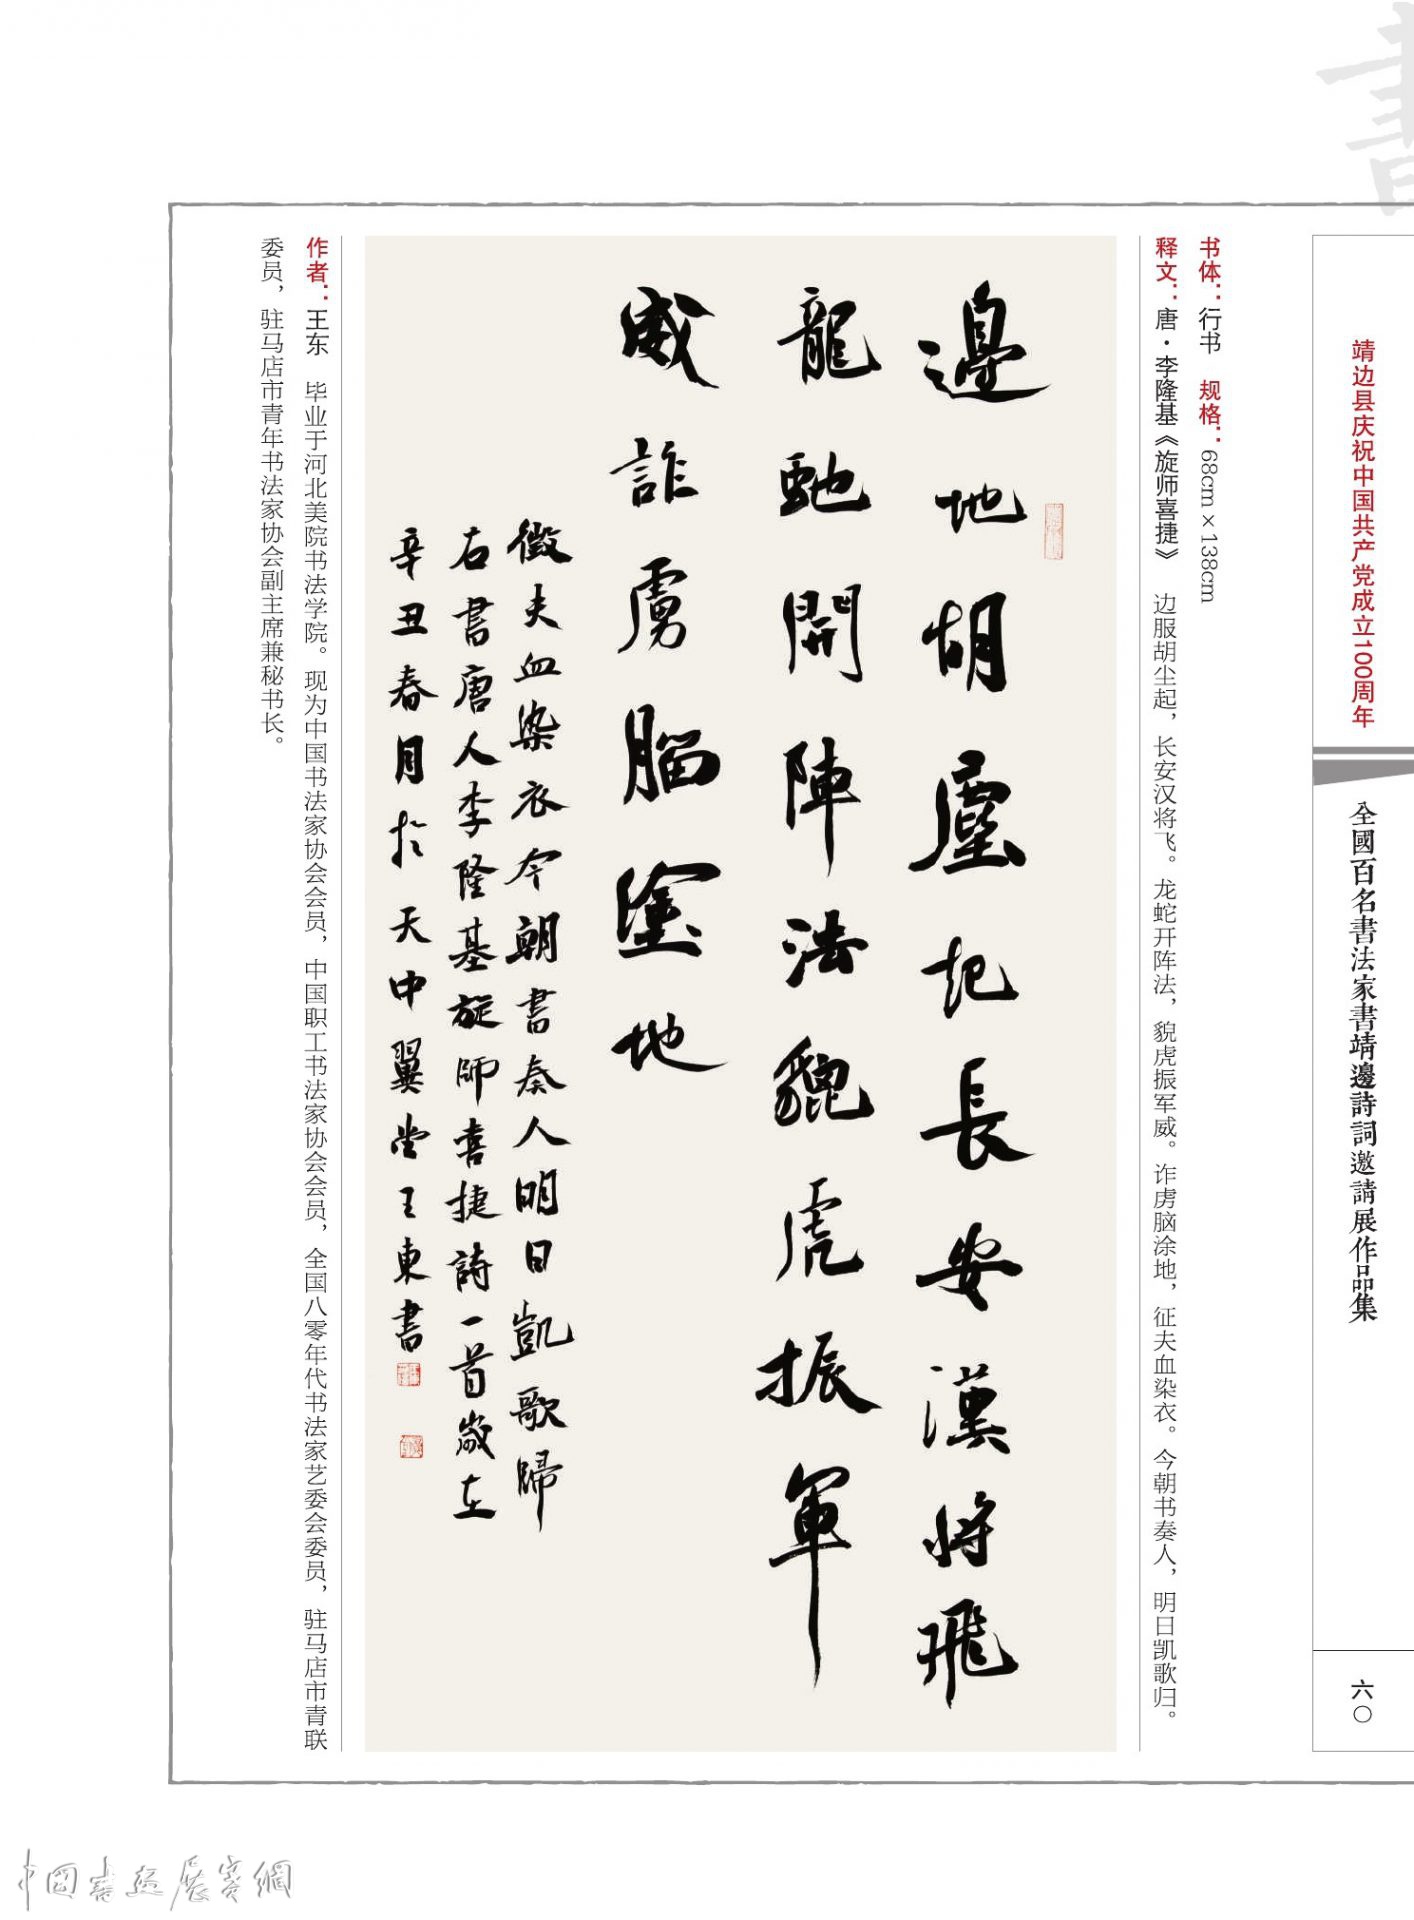 書
靖边县庆祝中国共产党成立100周年
全國百名書法家書靖邊詩詞邀請展作品集
六〇
书体：行书 规格：68cm×138cm
释文：唐·李隆基《旋师喜捷》 边服胡尘起，长安汉将飞。龙蛇开阵法，貔虎振军威。诈虏脑涂地，征夫血染衣。今朝书奏人，明日凯歌归。
邊地胡塵起長安漢將飛
龍馳開陣法貔虎振軍
威詐虜腦塗地
徵夫血染衣今朝書奏人明日凱歌歸
右書唐人李隆基旋師喜捷詩一首歲在
辛丑春月於天中翼堂王東書
作者：王东 毕业于河北美院书法学院。现为中国书法家协会会员，中国职工书法家协会会员，全国八零年代书法家艺委会委员，驻马店市青联
委员，驻马店市青年书法家协会副主席兼秘书长。
中國書畫展賽網